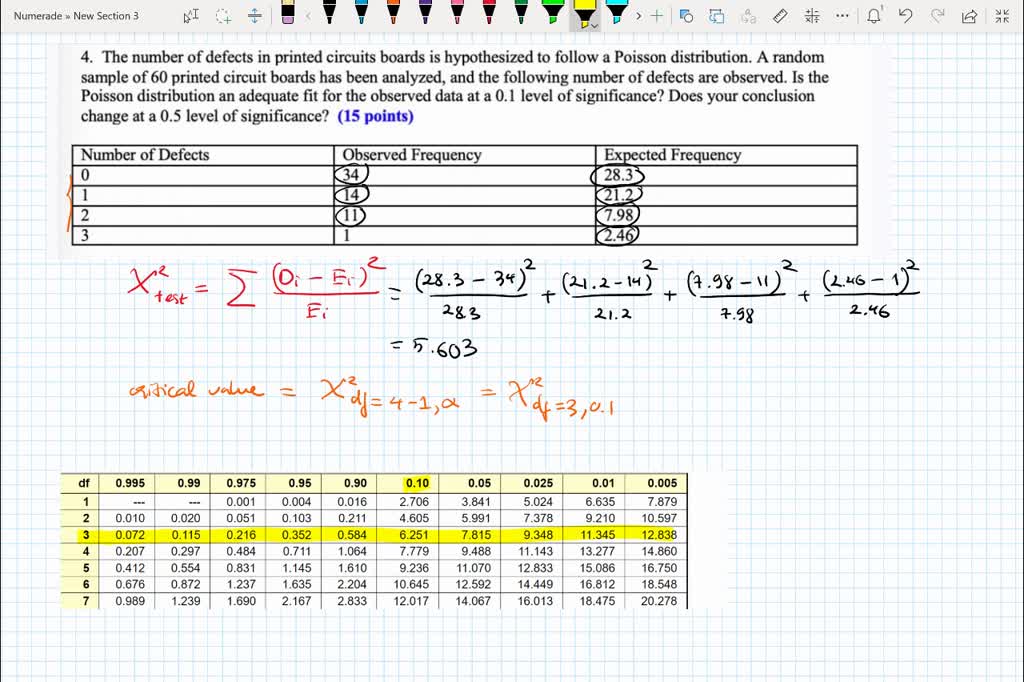 Numerade » New Section 3
4. The number of defects in printed circuits boards is hypothesized to follow a Poisson distribution. A random
sample of 60 printed circuit boards has been analyzed, and the following number of defects are observed. Is the
Poisson distribution an adequate fit for the observed data at a 0.1 level of significance? Does your conclusion
change at a 0.5 level of significance? (15 points)
Number of Defects Observed Frequency Expected Frequency
0 34 28.3
1 14 21.2
2 11 7.98
3 1 2.46
X²test = Σ (Oi - Ei)²/Ei = (28.3 - 34)²/28.3 + (21.2 - 14)²/21.2 + (7.98 - 11)²/7.98 + (2.46 - 1)²/2.46
= 5.603
critical value = X²df=4-1,α = X²df=3,0.1
df 0.995 0.99 0.975 0.95 0.90 0.10 0.05 0.025 0.01 0.005
1 --- --- 0.001 0.004 0.016 2.706 3.841 5.024 6.635 7.879
2 0.010 0.020 0.051 0.103 0.211 4.605 5.991 7.378 9.210 10.597
3 0.072 0.115 0.216 0.352 0.584 6.251 7.815 9.348 11.345 12.838
4 0.207 0.297 0.484 0.711 1.064 7.779 9.488 11.143 13.277 14.860
5 0.412 0.554 0.831 1.145 1.610 9.236 11.070 12.833 15.086 16.750
6 0.676 0.872 1.237 1.635 2.204 10.645 12.592 14.449 16.812 18.548
7 0.989 1.239 1.690 2.167 2.833 12.017 14.067 16.013 18.475 20.278